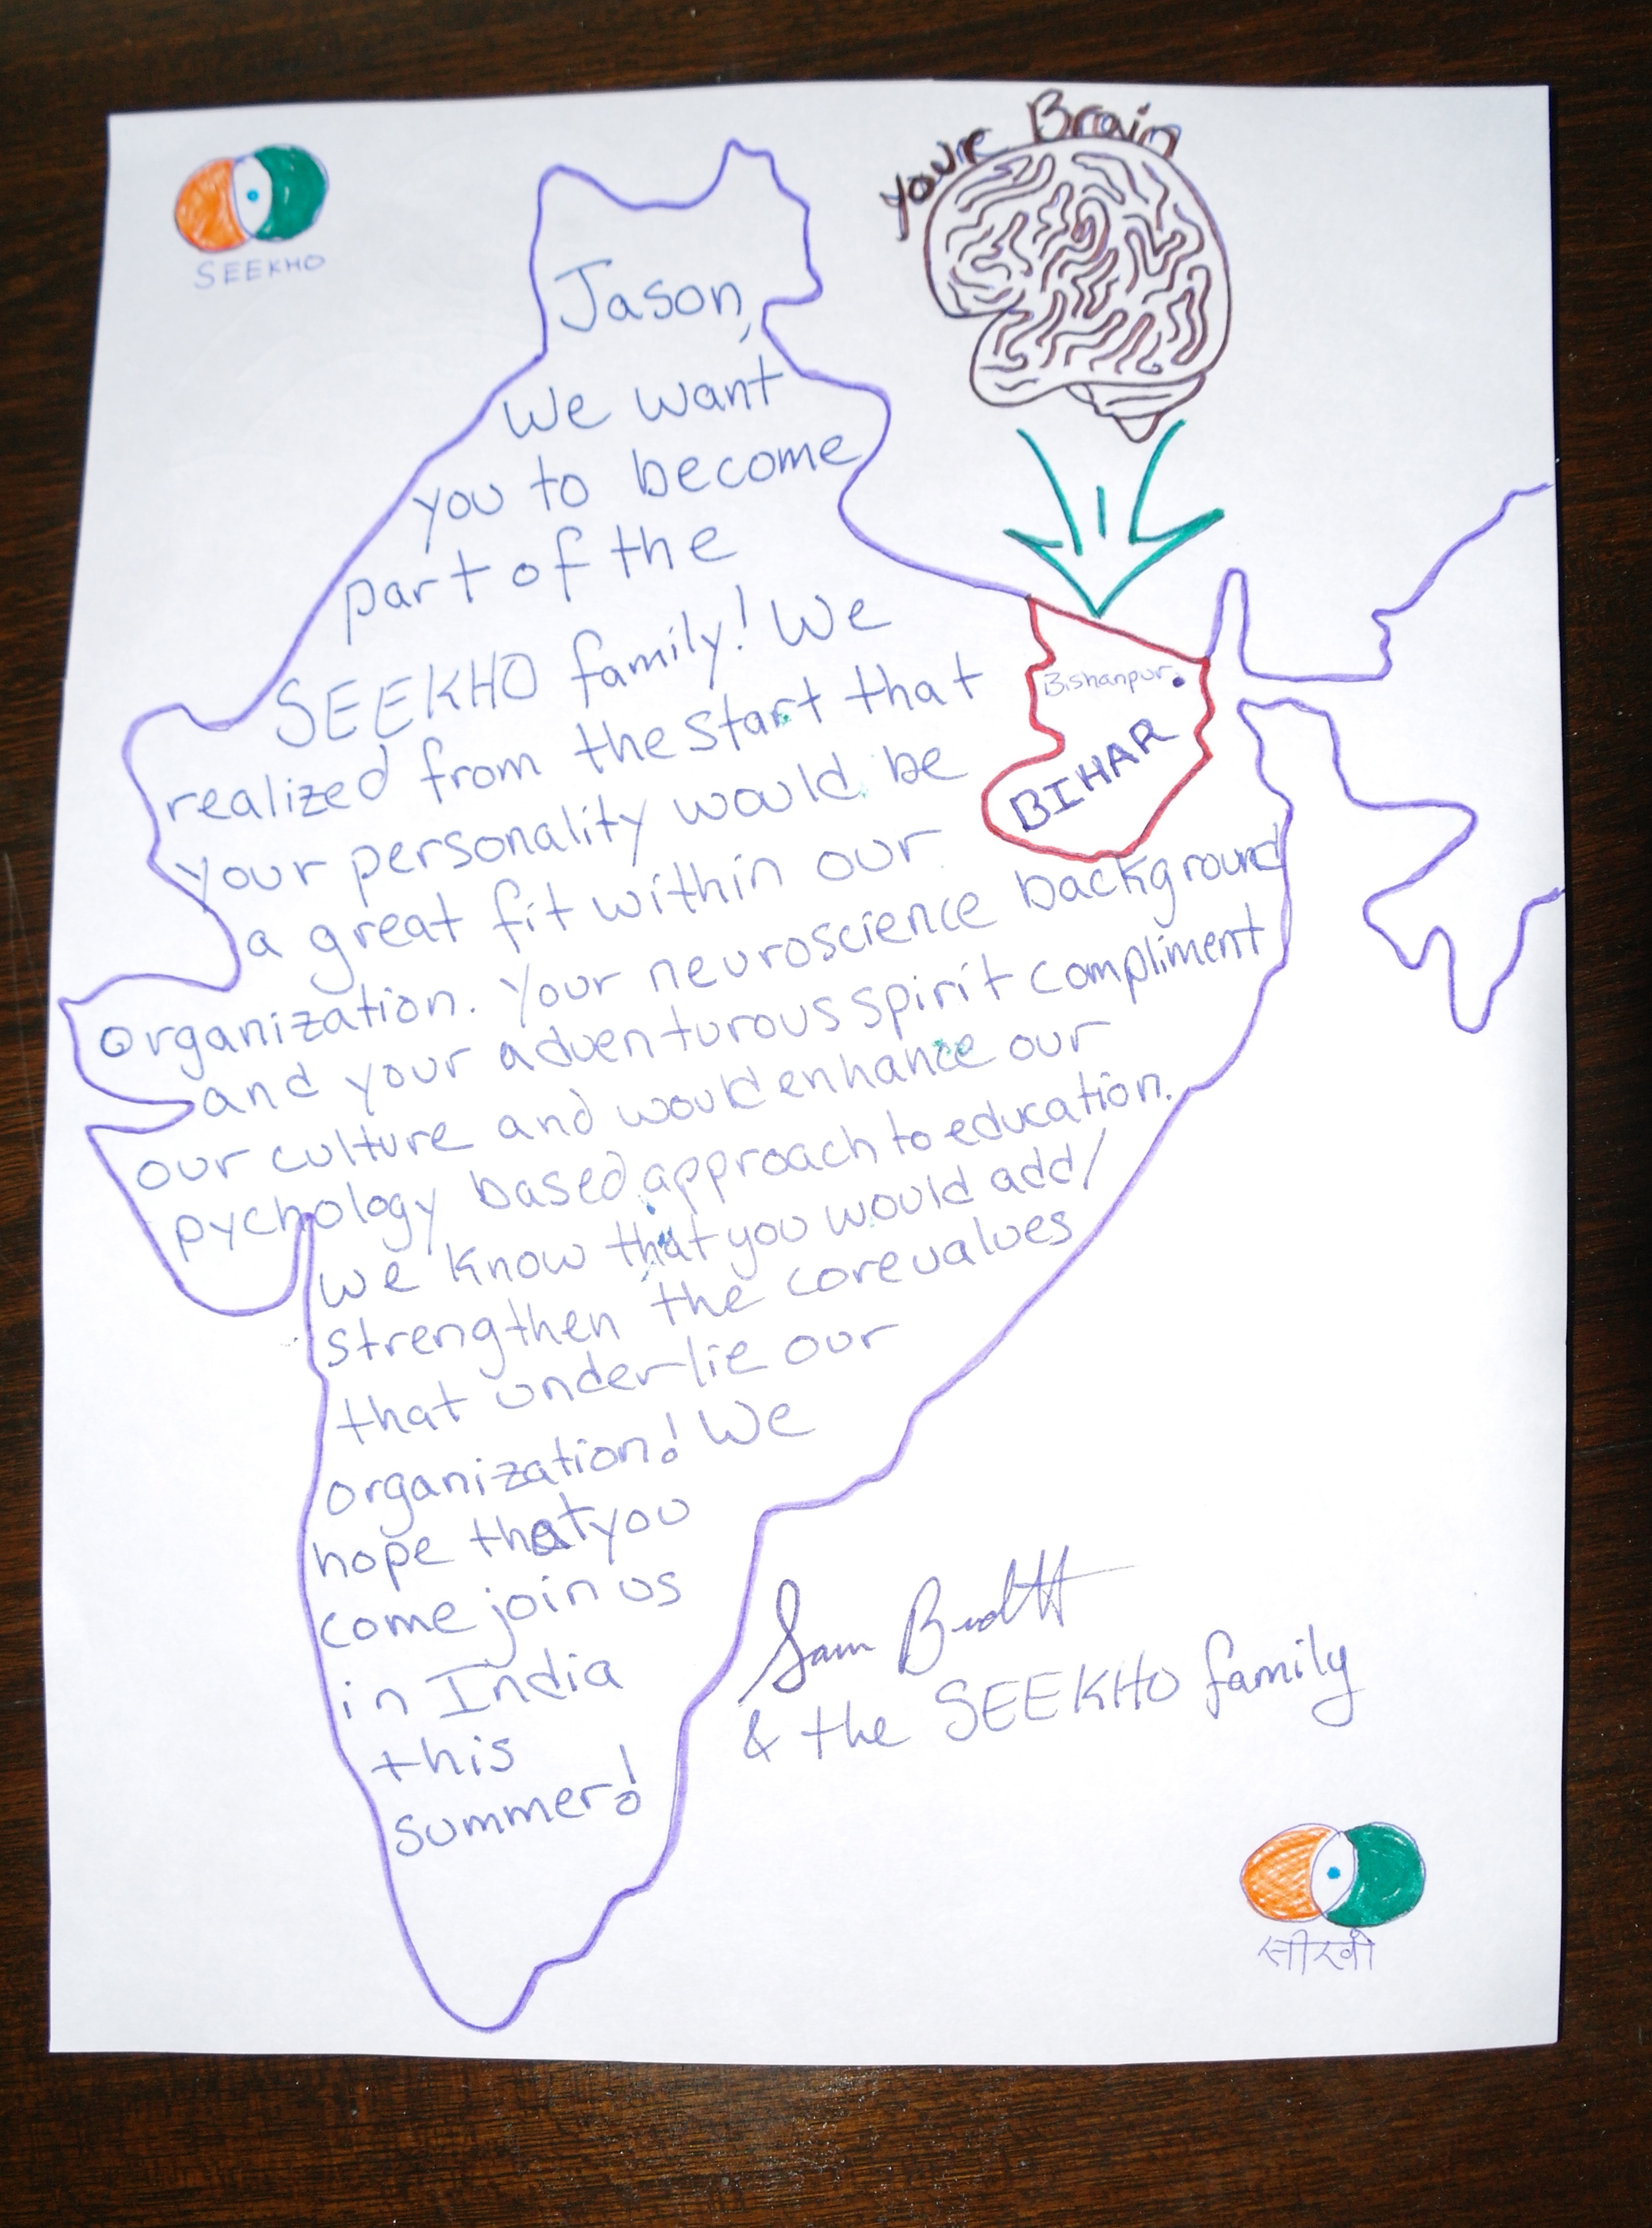 SEEKHO
you're Brain
Jason,
We want
you to become
part of the
SEEKHO family! We
realized from the start that
your personality would be
a great fit within our
organization. Your neuroscience background
and your adventurous spirit compliment
our culture and would enhance our
pychology based approach to education.
We know that you would add/
strengthen the core values
that underlie our
organization! We
hope that you
come join us
in India
this
summer!
Bishanpur
BIHAR
Sam
& the SEEKHO family
सीखो